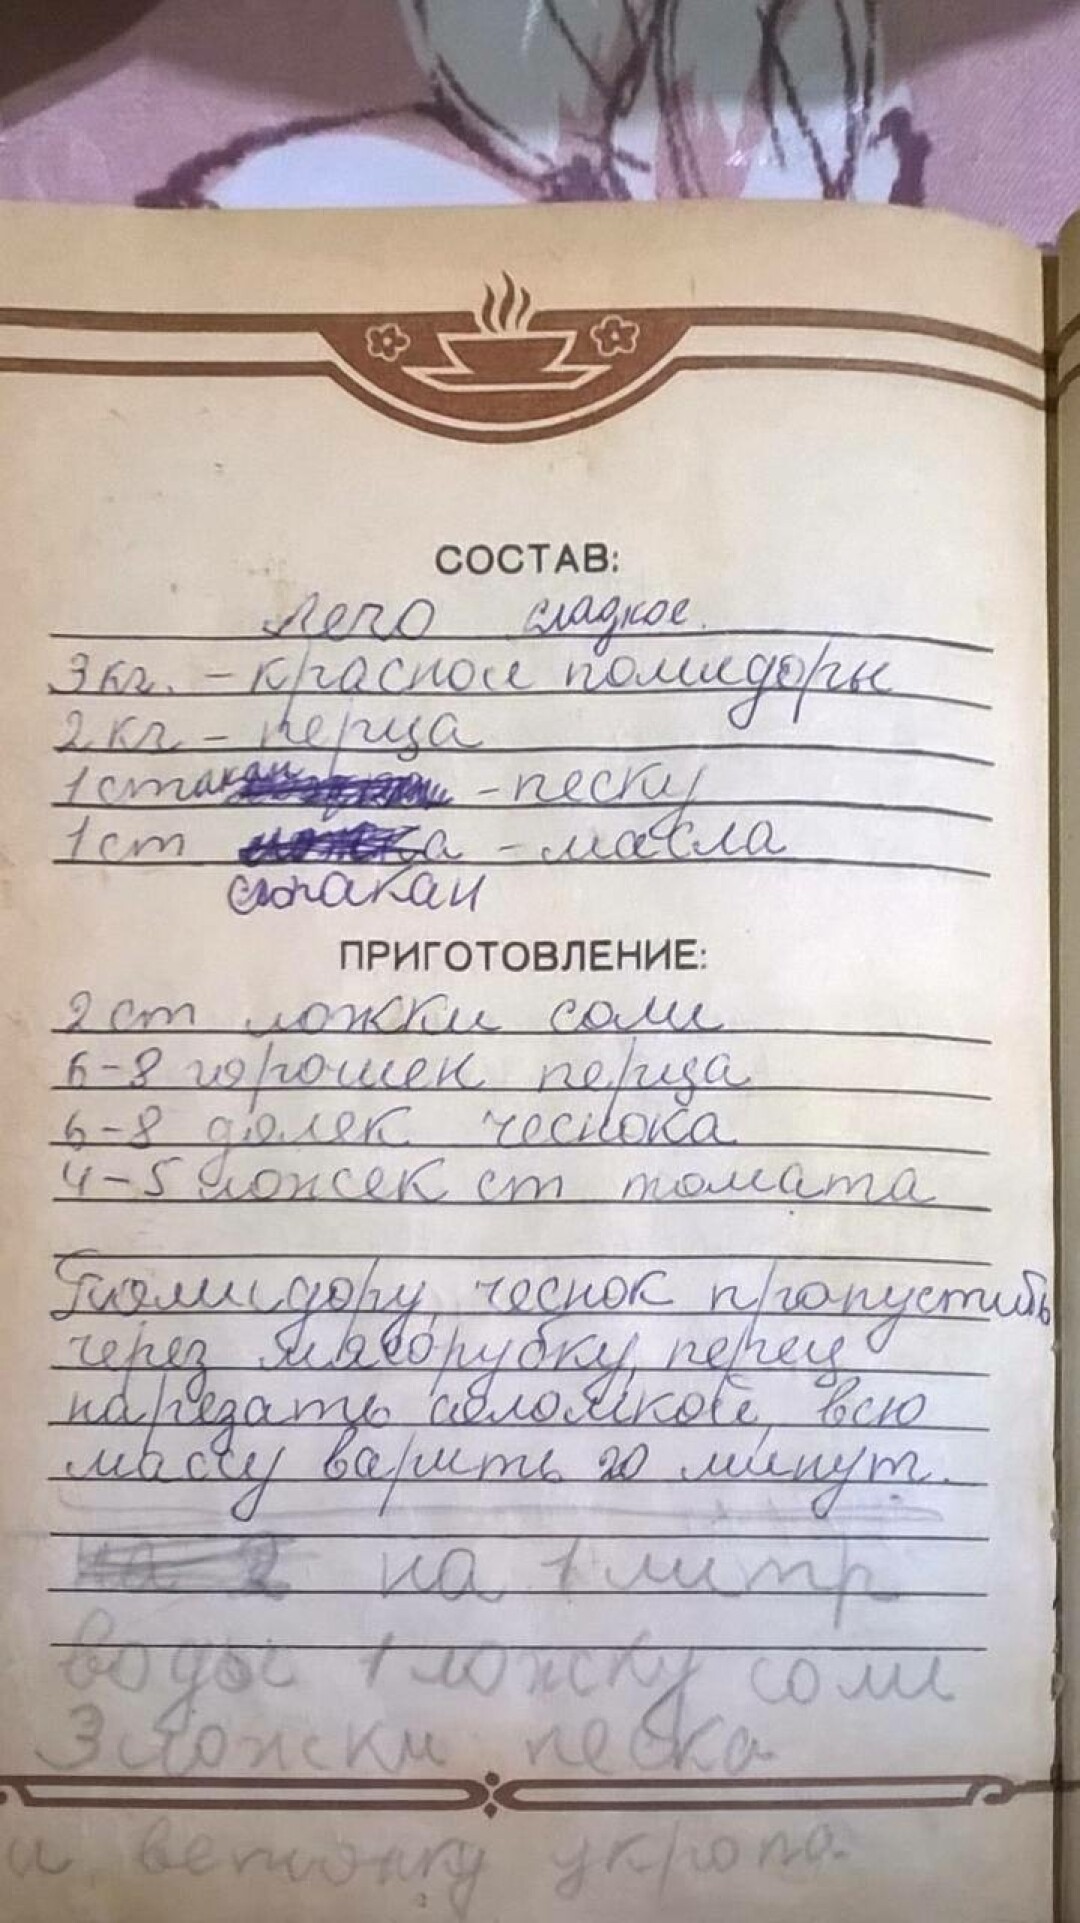 СОСТАВ:
Лечо сладкое.
3 кг. - красной помидоры
2 кг - перца
1 стакан - песку
1 ст а - масла
стакан
ПРИГОТОВЛЕНИЕ:
2 ст ложки соли
6-8 горошек перца
6-8 долек чеснока
4-5 ложек ст томата
Помидору, чеснок пропустить
через мясорубку, перец
нарезать соломкой, всю
массу варить 20 минут.
на 2 на 1 литр
воды 1 ложку соли
3 ложки песка
и веточку укропа.